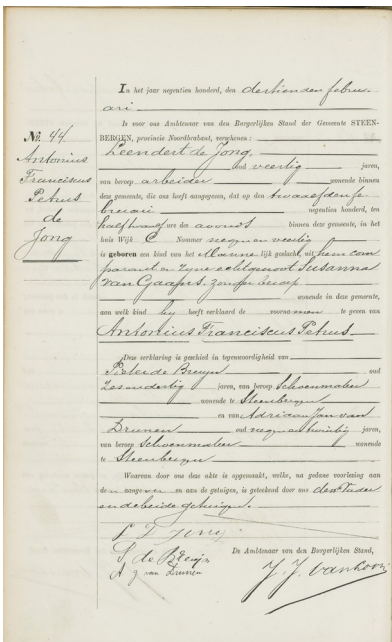 In het jaar negentien honderd, den dertienden februari
ari
No. 44.
Antonius
Franciscus
Petrus
de
Jong
Is voor ons Ambtenaar van den Burgerlijken Stand der Gemeente STEEN-
BERGEN, provincie Noordbrabant, verschenen:
Leendert de Jong,
oud veertig jaren,
van beroep arbeider wonende binnen
deze gemeente, die ons heeft aangegeven, dat op den twaalfden fe
bruari negentien honderd, ten
half twaalf ure des avonds binnen deze gemeente, in het
huis Wijk C Nommer negen en veertig
is geboren een kind van het Manne-lijk geslacht, uit hem com
parant en zyne echtgenoot Susanna
van Gaapns, zonder beroep
wonende in deze gemeente,
aan welk kind hy heeft verklaard de voornamen te geven van
Antonius Franciscus Petrus.
Deze verklaring is geschied in tegenwoordigheid van
Pieter de Bruyn oud
zesendertig jaren, van beroep Schoenmaker
wonende te Steenbergen
en van Adriaan Jan van
Drunen oud negenentwintig jaren,
van beroep Schoenmaker wonende
te Steenbergen
Waarvan door ons deze akte is opgemaakt, welke, na gedane voorlezing aan
den aangever en aan de getuigen, is geteekend door ons den Vader
en de beide getuigen.
L d Jong
de Bruijn
van Drunen
De Ambtenaar van den Burgerlijken Stand,
J. J. van